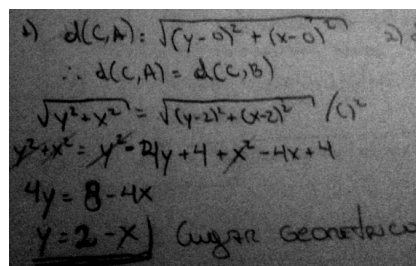 1) d(C,A): √(y-0)² + (x-0)² 2)
∴ d(C,A) = d(C,B)
√y²+x² = √(y-2)²+(x-2)² /()²
y²+x² = y² - 4y + 4 + x² - 4x + 4
4y = 8 - 4x
y = 2 - x Lugar Geometrico